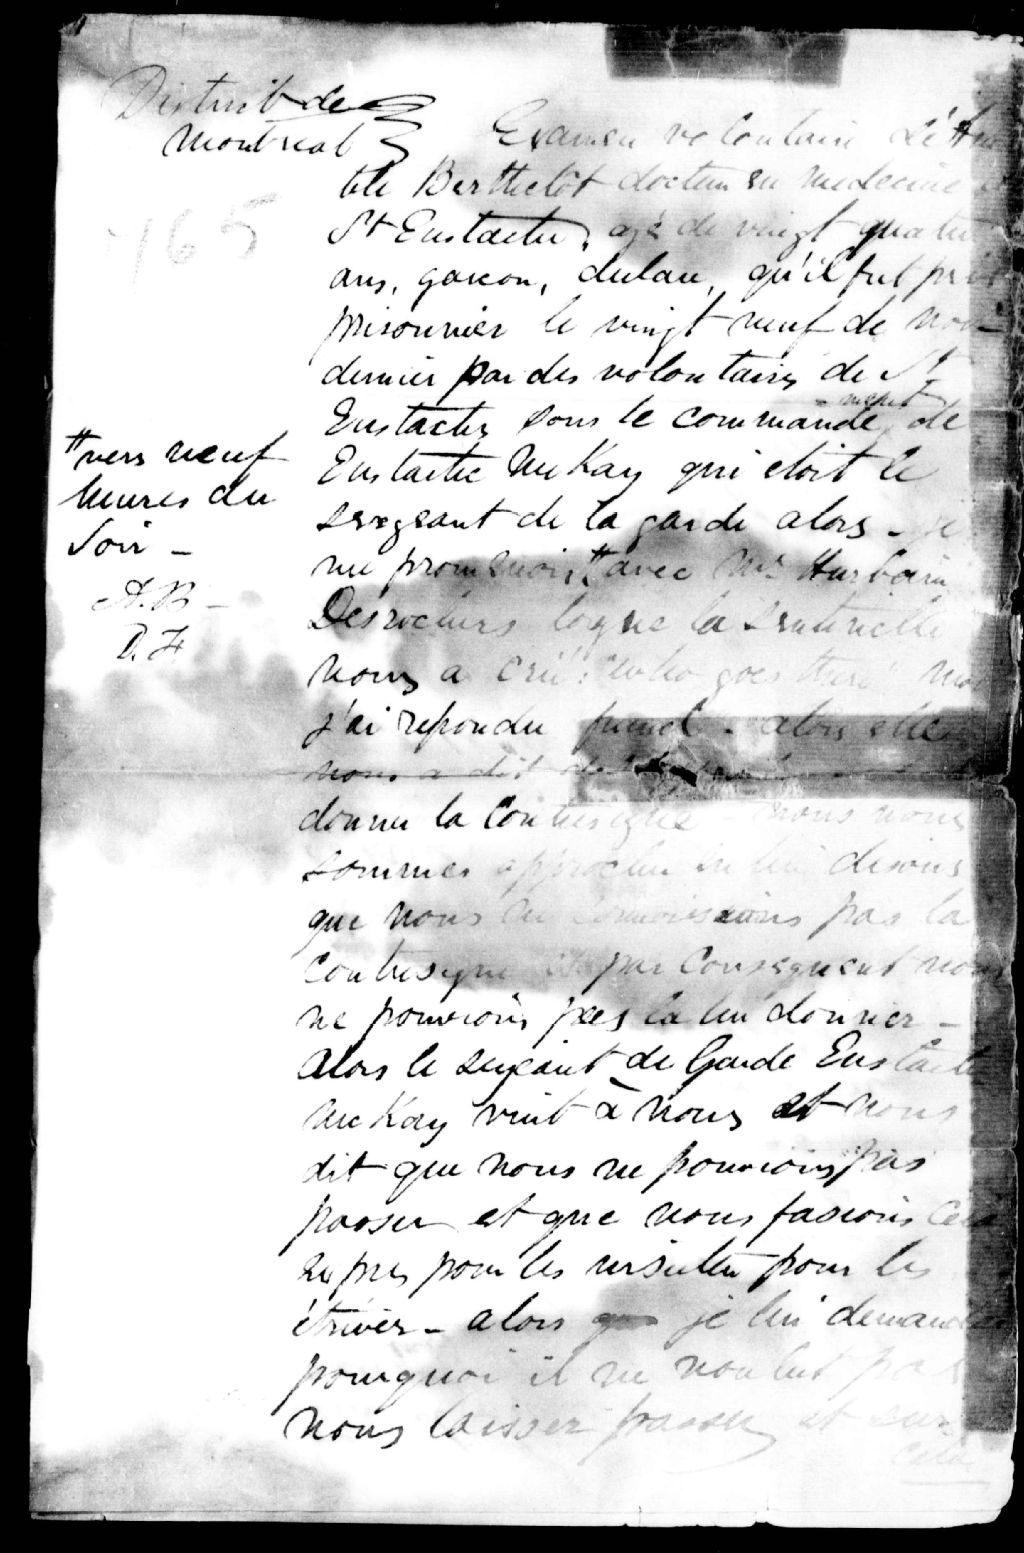 District de
Montreal
465
Examen volontaire d'Ama
ble Berthelôt docteur en medecine
St Eustache, agé de vingt quatre
ans, garcon, declare, qu'il fut prit
prisonnier le vingt neuf de nov
dernier par des volontaires de St
Eustache sous le commandement de
Eustache McKay qui etoit le
sergeant de la garde alors - je
me promenois # avec Mr Hurbain
# vers neuf
heures du
soir -
A. B -
D. F.
Desrochers lorque la sentinelle
nous a crié: who goes there
j'ai repondu friend - alors elle
nous a dit de
donner la Contresigne - nous nous
sommes approchés en lui disons
que nous ne connoissions pas la
contresigne et par consequent nous
ne pouvions pas la lui donner -
alors le sergeant de Garde Eustache
McKay vint à nous et nous
dit que nous ne pouvions pas
passer et que nous fasions cela
expres pour les insulter pour les
étriver - alors je lui demandai
pourquoi il ne voulut pas
nous laisser passer et sur
cela